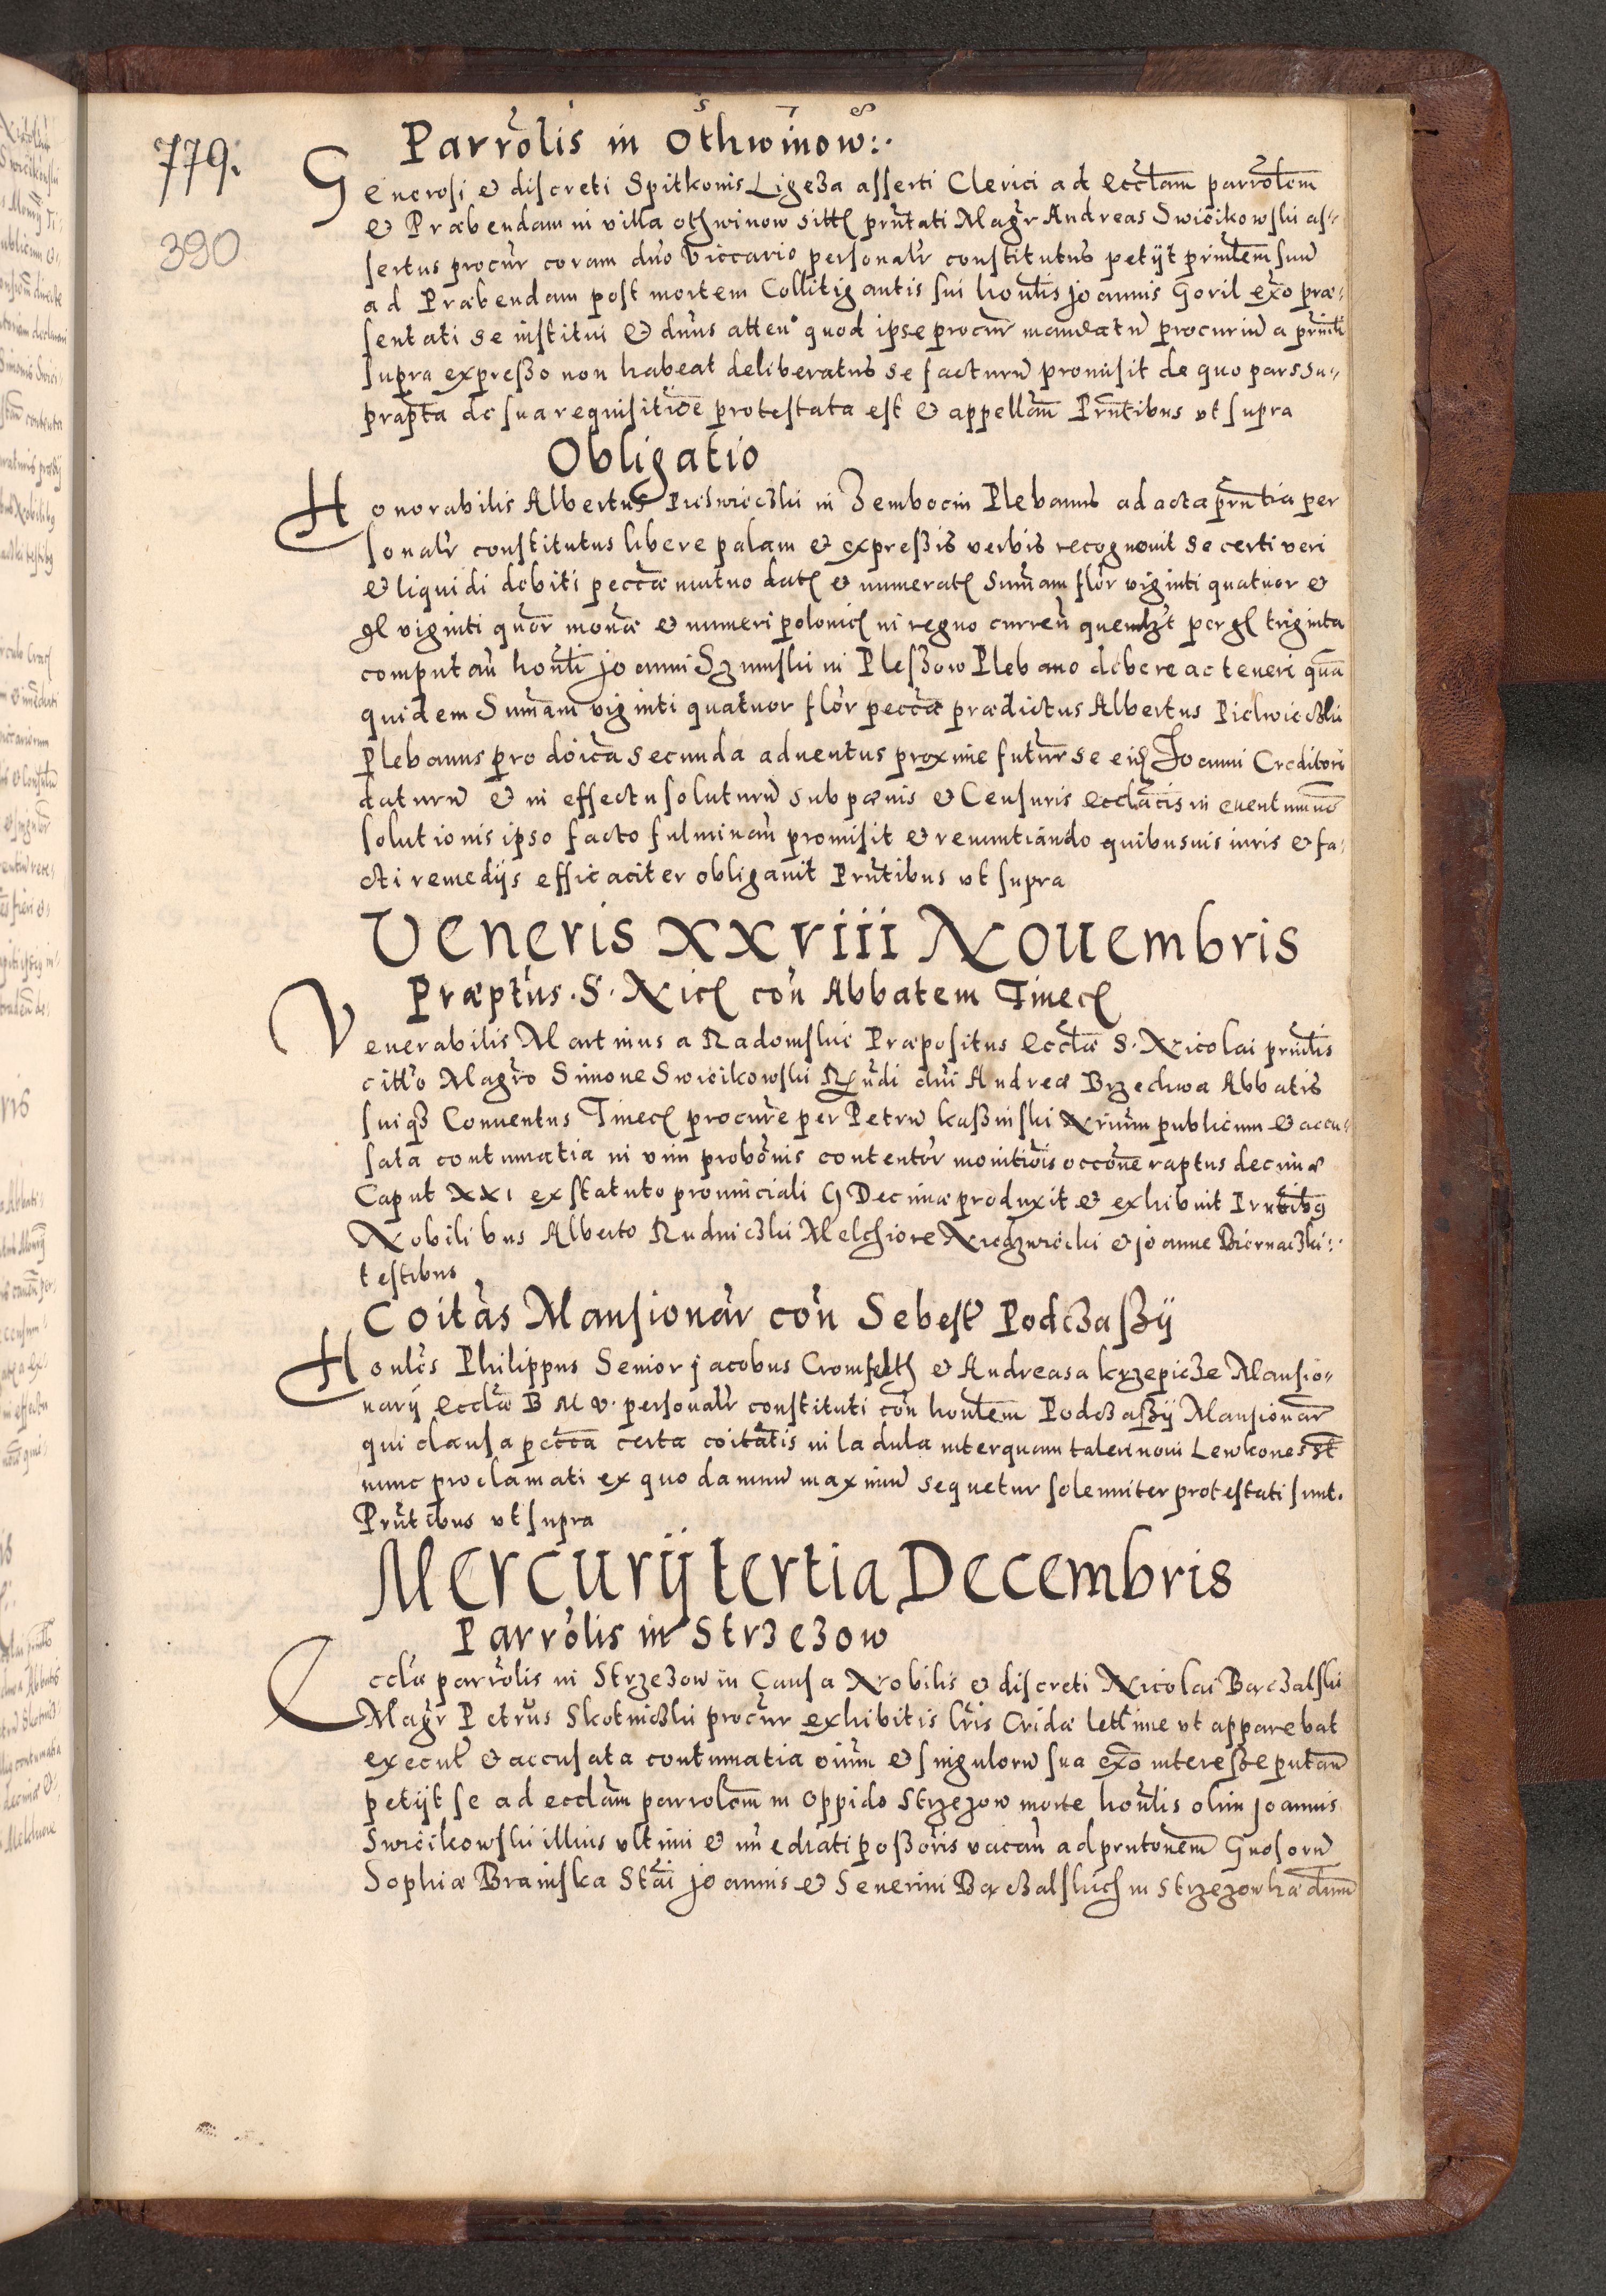 1 5 7 8
779.
390
Parrolis in Othwinow:.
Generosi & discreti Spitkonis Ligeza asserti Clerici ad Ecclam parrolem
& Præbendam in villa othwinow sitt prntati Magr Andreas Swicikowski as-
sertus procur coram dno Viccario personalr constitutus petyt prinlem suu
ad Præbendam post mortem Collitigantis sui honlis joannis Goril exo præ-
sentati se institui & dnus atten quod ipse procur mandatu procuriu a prinli
supra expresso non habeat deliberatus se facturu promisit de quo pars su-
prapta de sua requisitioe protestata est & appellan Prntibus vt supra
Obligatio
Honorabilis Albertus in Zembocin Plebanus ad acta prntia per
sonalr constitutus libere palam & expressis verbis recognouit se certi veri
& liquidi debiti peccæ mutuo dat & numerat Summam flor viginti quatuor &
gl viginti quor monæ & numeri polonic in regno curren quemlzt per gl triginta
computan honli joanni Szminski in Plessow Plebano debere ac teneri qua
quidem Summam viginti quatuor flor peccæ prædictus Albertus
Plebanus pro doica secunda aduentus proxime futur se eid Joanni Creditori
daturu & in effectu soluturu sub pænis & Censuris ecclacis in euentum no
solutionis ipso facto fulminan promisit & renuntiando quibusuis iuris & fa-
cti remedijs efficaciter obligauit Prntibus vt supra
Veneris XXVIII Nouembris
Præptus . S . Nic con Abbatem Tinec
Venerabilis Martinus a Radomskie Præpositus Ecclæ S. Nicolai prinlis
citto Magro Simone Swicikowski Rndi dni Andreæ Brzechwa Abbatis
suiq Conuentus Tinec procure per Petru kassinski Nrium publicum & accu-
sata contumatia in vim probonis contentor monitiois occone raptus decimæ
Caput XXI ex statuto prouinciali Decimæ produxit & exhibuit Prntibq
Nobilibus Alberto Rudniczki Melchiore Niedzwicki & joanne Biernaczki:.
testibus
Coitas Mansionar con Sebest Podczassy
Honles Philippus Senior jacobus Cromfelth & Andreas a krzepicze Mansio-
narij Ecclæ B M V. personalr constituti con honlem Podczassy Mansionar
qui clausa pecca certa coitatis in ladula interquam taleri noui Lewkones st
nunc proclamati ex quo damnu maximu sequetur solenniter protestati sunt.
Prntibus vt supra
Mercurij tertia Decembris
Parrolis in Strzezow
Ecclæ parrolis in Strzezow in Causa Nobilis & discreti Nicolai Barczalski
Magr Petrus Skotniczki procur exhibitis lris Cridæ letltime vt apparebat
execut & accusata contumatia oium & singuloru sua exo interesse putan
petijt se ad ecclam parrolem in oppido Strzezow morte honlis olim joannis
Swicikowski illius vltimi & immediati possoris vacan ad prntonem Gnosoru
Sophiæ Braniska Stai joannis & Seuerini Barczalskich in Strzezow hædum